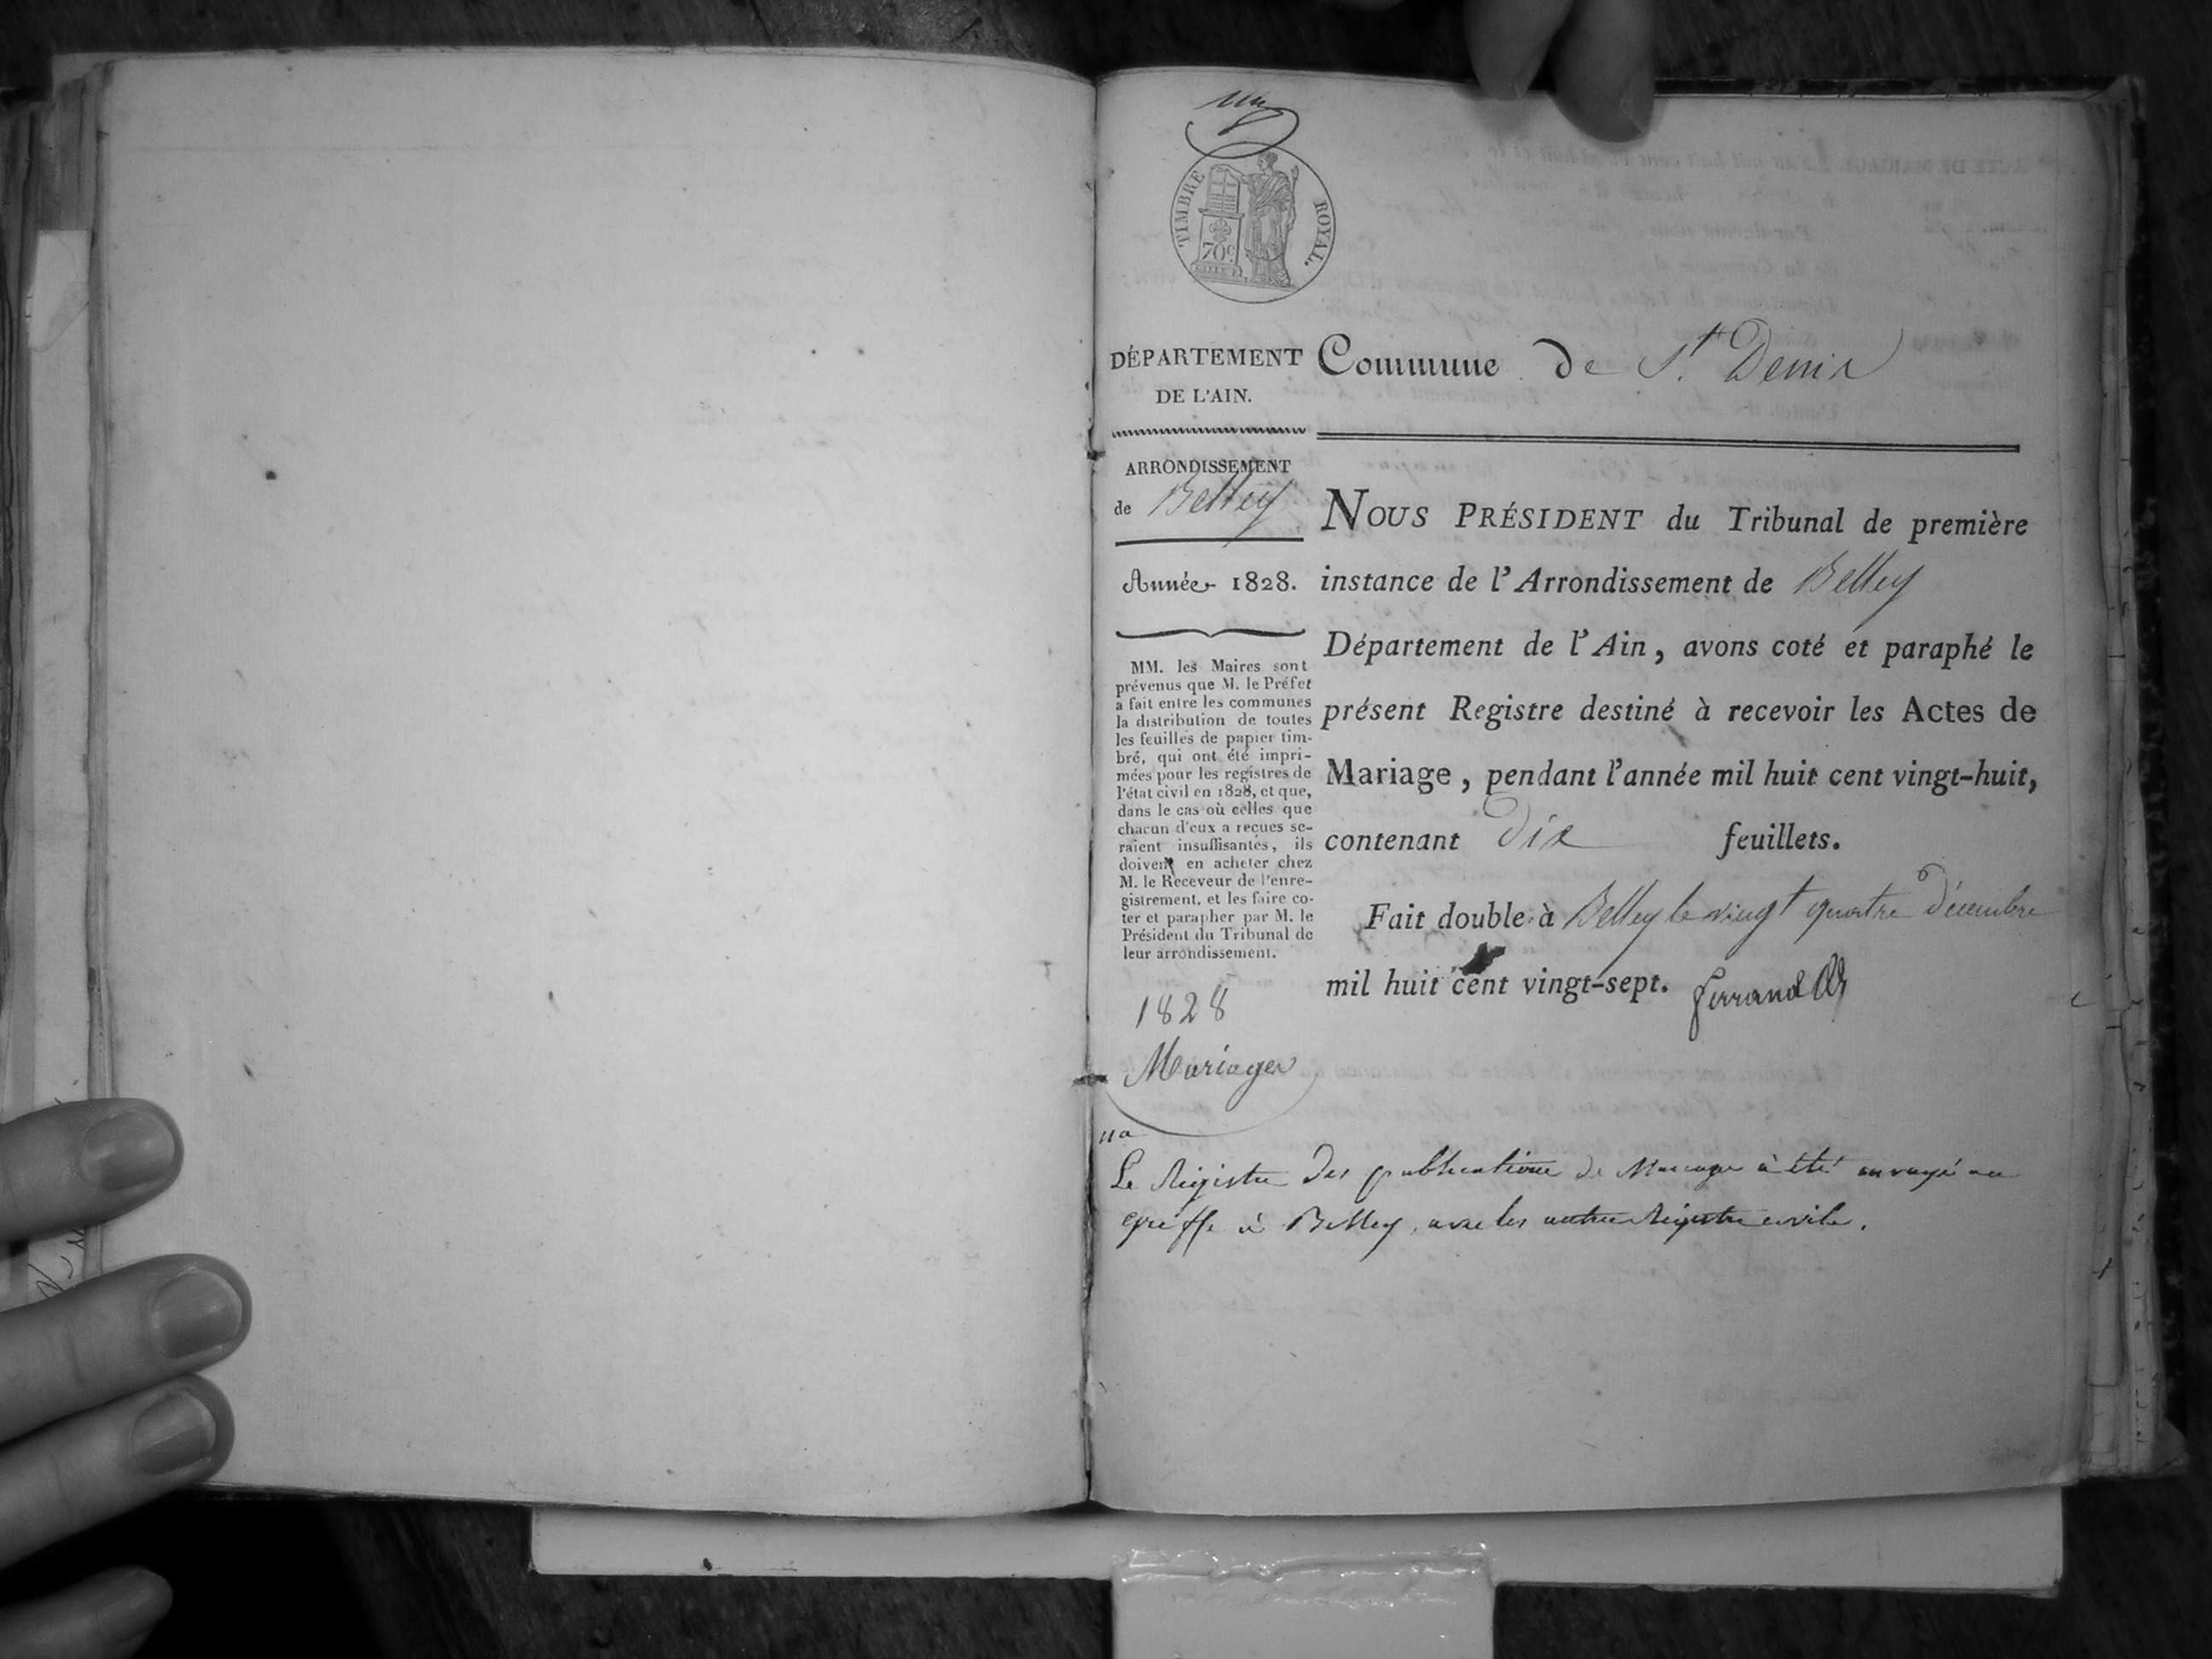 un
TIMBRE ROYAL.
70c
DÉPARTEMENT
DE L'AIN.
Commune de St. Denis
ARRONDISSEMENT
de Belley
Année 1828.
MM. les Maires sont
prévenus que M. le Préfet
a fait entre les communes
la distribution de toutes
les feuilles de papier tim-
bré, qui ont été impri-
mées pour les registres de
l'état civil en 1828, et que,
dans le cas où celles que
chacun d'eux a reçues se-
raient insuffisantes, ils
doivent en acheter chez
M. le Receveur de l'enre-
gistrement, et les faire co-
ter et parapher par M. le
Président du Tribunal de
leur arrondissement.
1828
Mariages
NOUS PRÉSIDENT du Tribunal de première
instance de l'Arrondissement de Belley
Département de l'Ain, avons coté et paraphé le
présent Registre destiné à recevoir les Actes de
Mariage, pendant l'année mil huit cent vingt-huit,
contenant Dix feuillets.
Fait double à Belley le vingt quatre Décembre
mil huit cent vingt-sept. ferrand
Le Registre Des publications de Mariage à été envoyé au
greffe à Belley, avec les autres Registres civils.